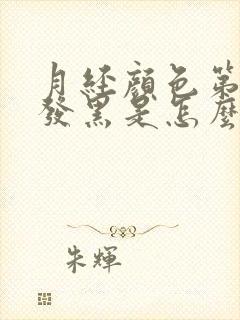 月經顏色第
發黑是怎麼
朱輝